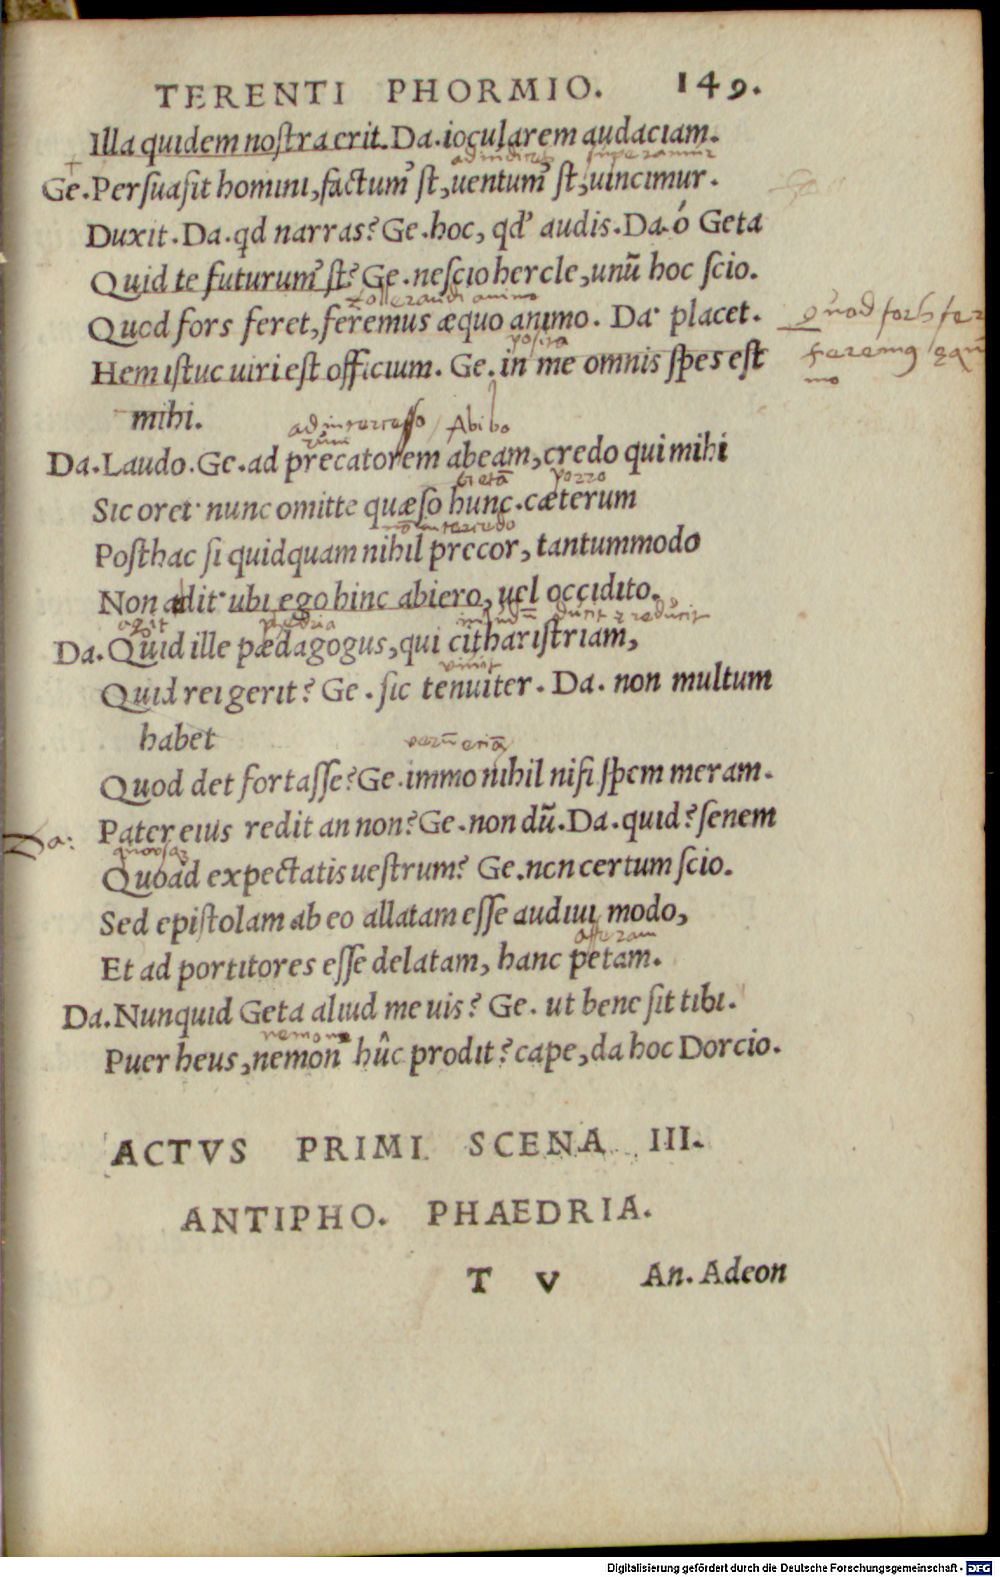 TERENTI PHORMIO. 149.
Illa quidem nostra erit. Da. iocularem audaciam.
superamur
Ge. Persuasit homini, factum' st, uentum' st, uincimur.
Duxit. Da. qd narras? Ge. hoc, qd' audis. Da. ó Geta
Quid te futurum' st? Ge. nescio hercle, unū hoc scio.
animo
Quod fors feret, feremus æquo animo. Da. placet.
quod fors fer
posita
feremus
Hem istuc uiri est officium. Ge. in me omnis spes est
mo
mihi.
Abibo
Da. Laudo. Ge. ad precatorem abeam, credo qui mihi
getā porro
Sic oret: nunc omitte quæso hunc. cæterum
nō intercedo
Posthac si quidquam nihil precor, tantummodo
Non adit: ubi ego hinc abiero, uel occidito.
agit phedria ducit & reducit
Da. Quid ille pædagogus, qui citharistriam,
vivit
Quid rei gerit? Ge. sic tenuiter. Da. non multum
habet
verū etiā
Quod det fortasse? Ge. immo nihil nisi spem meram.
Da: Pater eius redit an non? Ge. non dū. Da. quid? senem
Quoad expectatis uestrum? Ge. non certum scio.
Sed epistolam ab eo allatam esse audiui modo,
afferam
Et ad portitores esse delatam, hanc petam.
Da. Nunquid Geta aliud me uis? Ge. ut bene sit tibi.
nemone
Puer heus, nemon hûc prodit? cape, da hoc Dorcio.
ACTVS PRIMI SCENA III.
ANTIPHO. PHAEDRIA.
T V An. Adeon
Digitalisierung gefördert durch die Deutsche Forschungsgemeinschaft - DFG